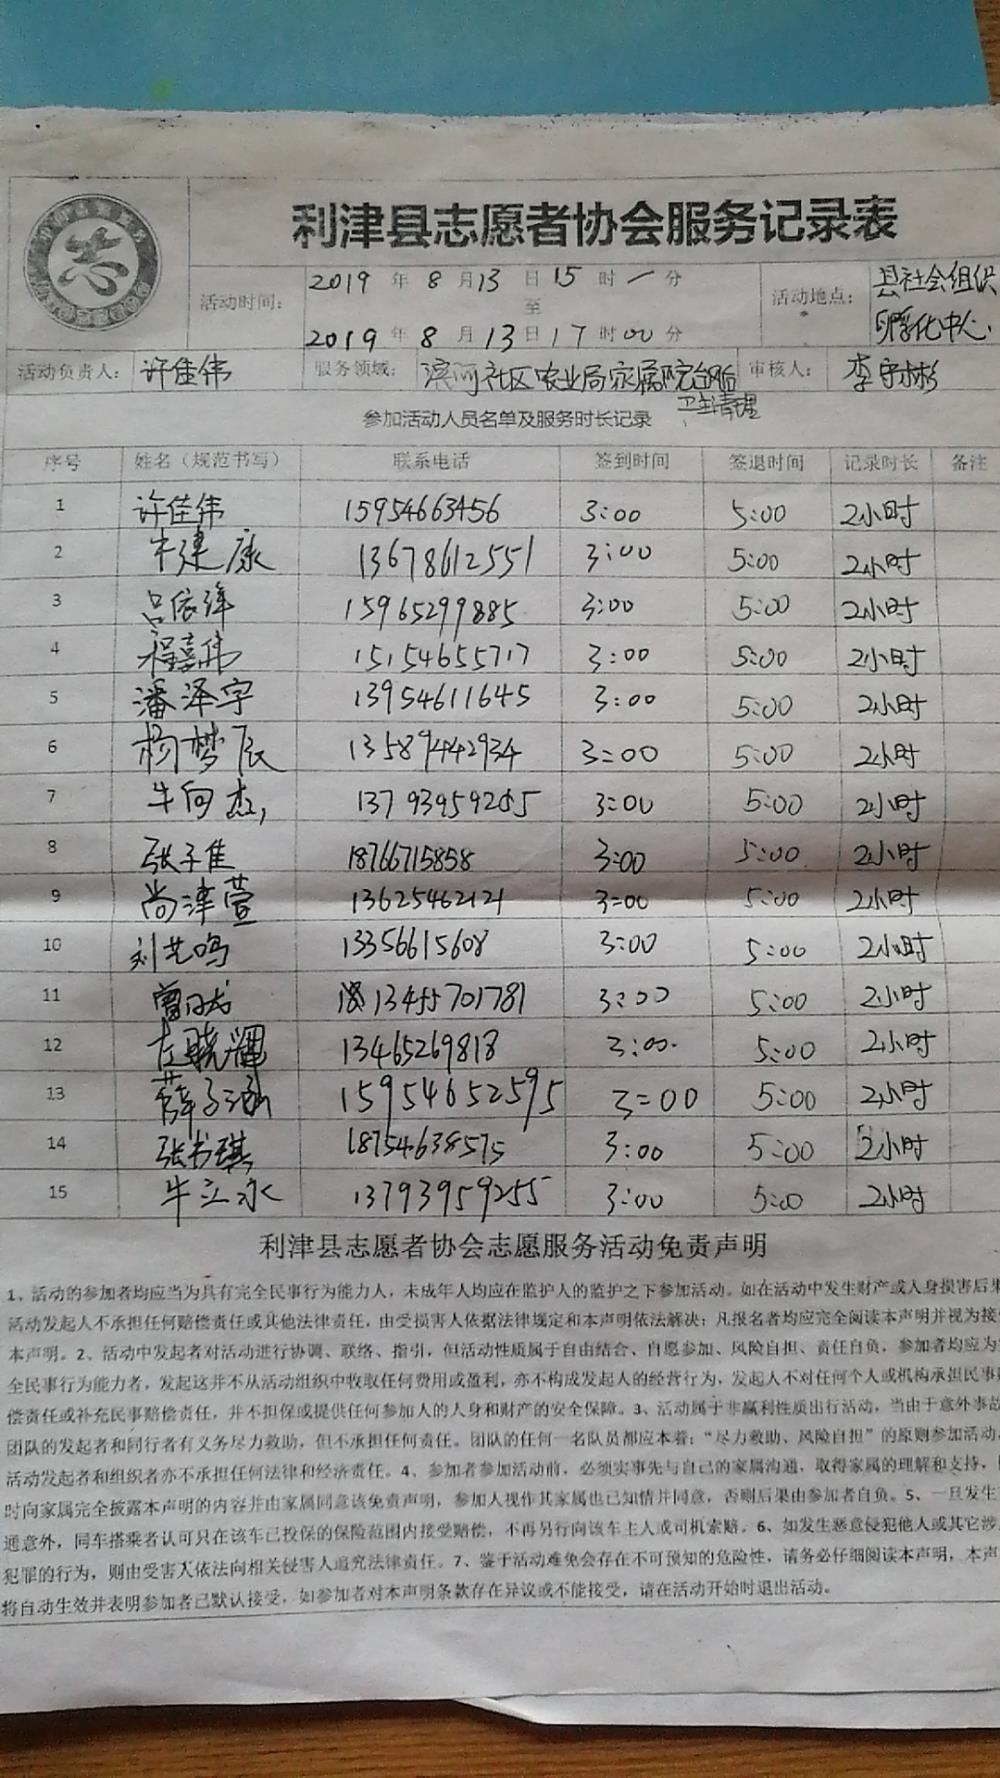 志
利津县志愿者协会服务记录表
活动时间： 2019 年 8 月 13 日 15 时 一 分
至
2019 年 8 月 13 日 17 时 00 分
活动地点： 县社会组织
孵化中心
活动负责人： 许佳伟 服务领域： 滨河社区农业局家属院 审核人：
卫生清理
参加活动人员名单及服务时长记录
序号 姓名（规范书写） 联系电话 签到时间 签退时间 记录时长 备注
1 许佳伟 15954663456 3:00 5:00 2小时
2 牛建康 13678612551 3:00 5:00 2小时
3 吕依泽 15965299885 3:00 5:00 2小时
4 程嘉伟 15154655717 3:00 5:00 2小时
5 潘泽宇 13954611645 3:00 5:00 2小时
6 杨梦辰 13589442934 3:00 5:00 2小时
7 牛向杰 3:00 5:00 2小时
8 张子佳 18766715858 3:00 5:00 2小时
9 尚津萱 13625462121 3:00 5:00 2小时
10 刘艺鸣 13356615608 3:00 5:00 2小时
11 3:00 5:00 2小时
12 左晓翼 13465269818 3:00 5:00 2小时
13 薛子涵 15954652595 3:00 5:00 2小时
14 张书琪 18754638575 3:00 5:00 2小时
15 牛立冰 13793959255 3:00 5:00 2小时
利津县志愿者协会志愿服务活动免责声明
1、活动的参加者均应当为具有完全民事行为能力人，未成年人均应在监护人的监护之下参加活动。如在活动中发生财产或人身损害后果
活动发起人不承担任何赔偿责任或其他法律责任，由受损害人依据法律规定和本声明依法解决；凡报名者均应完全阅读本声明并视为接
本声明。2、活动中发起者对活动进行协调、联络、指引，但活动性质属于自由结合、自愿参加、风险自担、责任自负，参加者均应为
全民事行为能力者，发起这并不从活动组织中收取任何费用或盈利，亦不构成发起人的经营行为，发起人不对任何个人或机构承担民事
偿责任或补充民事赔偿责任，并不担保或提供任何参加人的人身和财产的安全保障。3、活动属于非赢利性质出行活动，当由于意外事故
团队的发起者和同行者有义务尽力救助，但不承担任何责任。团队的任何一名队员都应本着：“尽力救助、风险自担”的原则参加活动
活动发起者和组织者亦不承担任何法律和经济责任。4、参加者参加活动前，必须实事先与自己的家属沟通，取得家属的理解和支持，
时向家属完全披露本声明的内容并由家属同意该免责声明，参加人视作其家属也已知情并同意，否则后果由参加者自负。5、一旦发生
通意外，同车搭乘者认可只在该车已投保的保险范围内接受赔偿，不再另行向该车主人或司机索赔。6、如发生恶意侵犯他人或其它涉
犯罪的行为，则由受害人依法向相关侵害人追究法律责任。7、鉴于活动难免会存在不可预知的危险性，请务必仔细阅读本声明，本声
将自动生效并表明参加者已默认接受，如参加者对本声明条款存在异议或不能接受，请在活动开始时退出活动。